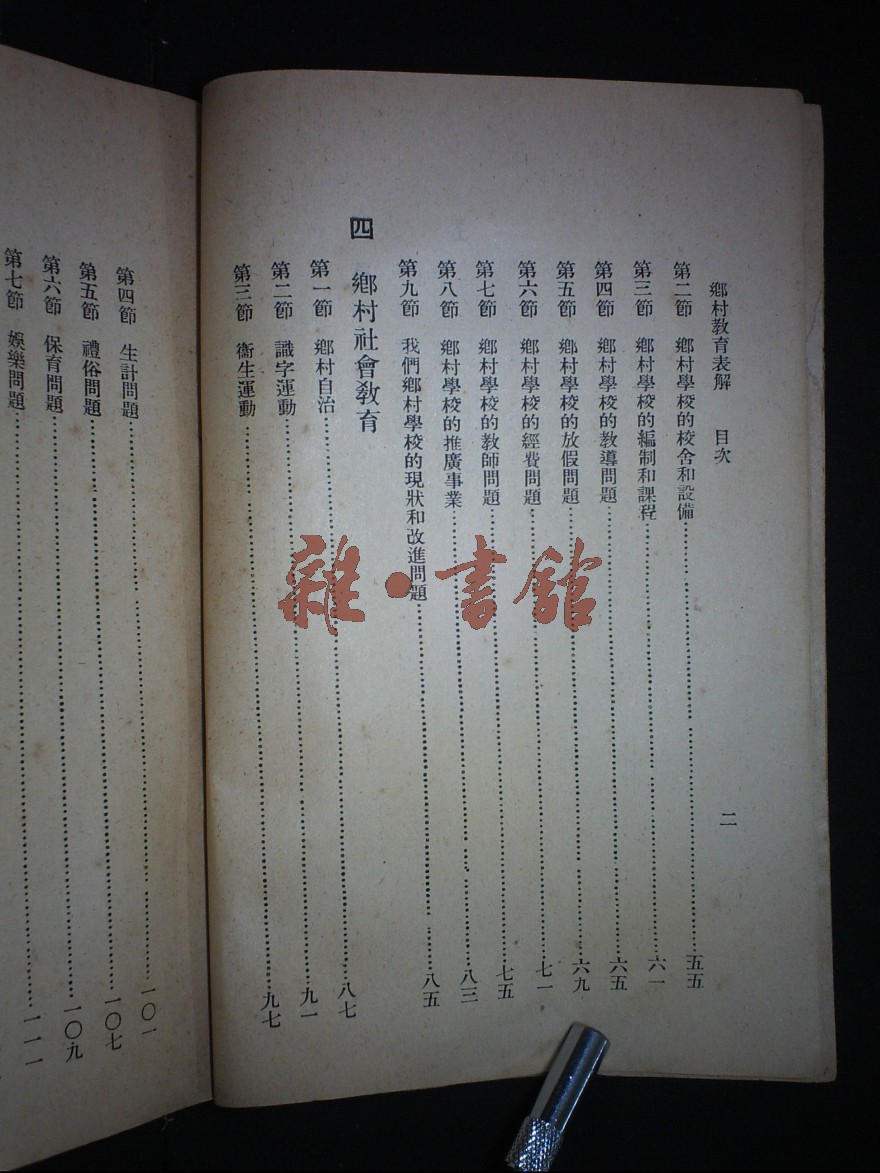 鄉村教育表解 目次 二
第二節 鄉村學校的校舍和設備 五五
第三節 鄉村學校的編制和課程 六一
第四節 鄉村學校的教導問題 六五
第五節 鄉村學校的放假問題 六九
第六節 鄉村學校的經費問題 七一
第七節 鄉村學校的教師問題 七五
第八節 鄉村學校的推廣事業 八三
第九節 我們鄉村學校的現狀和改進問題 八五
四 鄉村社會教育
第一節 鄉村自治 八七
第二節 識字運動 九一
第三節 衞生運動 九七
第四節 生計問題 一〇一
第五節 禮俗問題 一〇七
第六節 保育問題 一〇九
第七節 娛樂問題 一一一
雜·書館